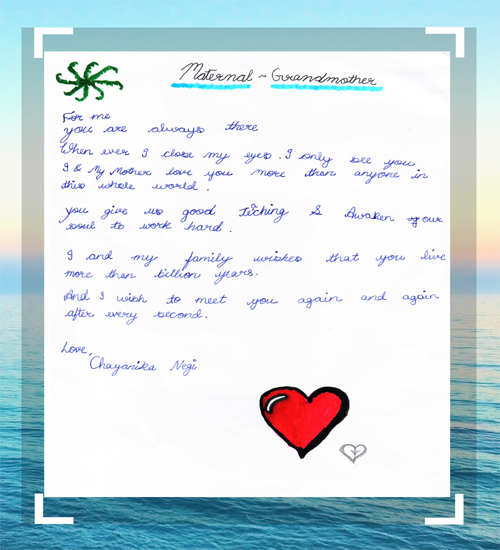 Maternal ~ Grandmother
For me
you are always there
When ever I close my eyes. I only see you
I & My Mother love you more then anyone in
this whole world.
you give us good teching & Awaken our
soul to work hard.
I and my family wishes that you live
more then billion years.
And I wish to meet you again and again
after every second.
Love,
Chayanika Negi